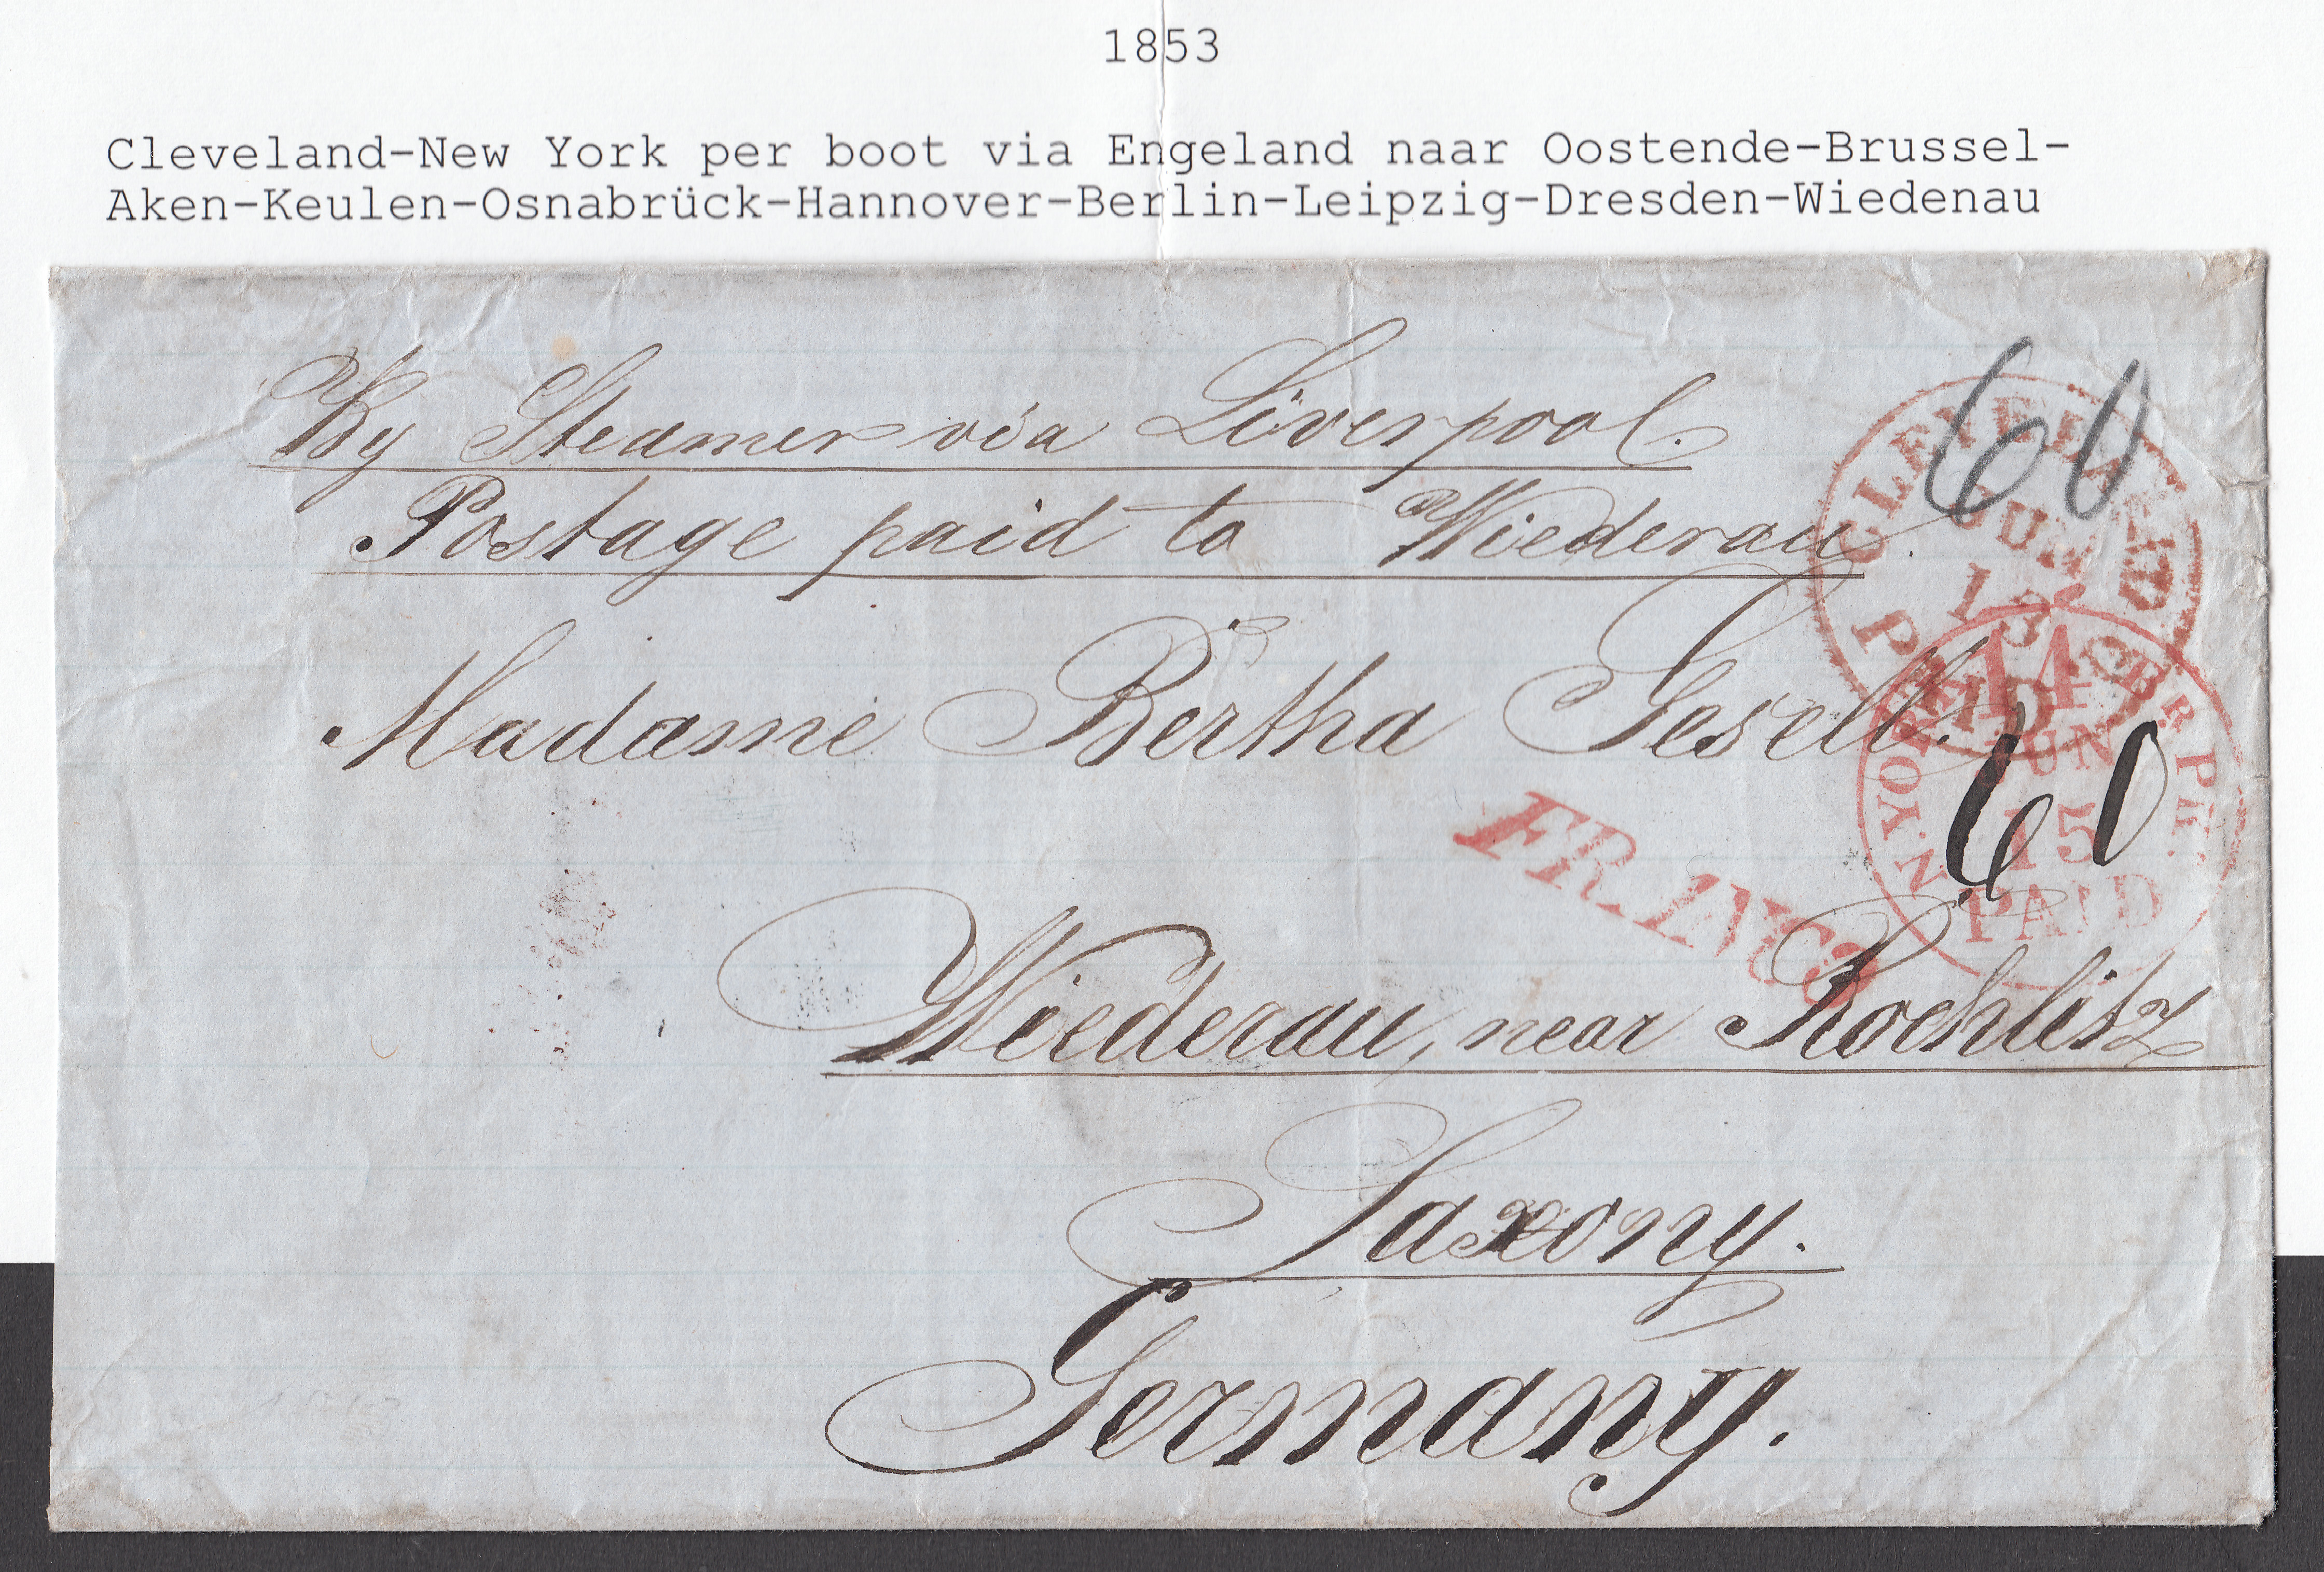 1853
Cleveland-New York per boot via Engeland naar Oostende-Brussel-
Aken-Keulen-Osnabrück-Hannover-Berlin-Leipzig-Dresden-Wiedenau
By Steamer via Liverpool.
Postage paid to Wiederau.
60
CLEVELAND
JUN
13
PAID
Madame Bertha Gesell.
N.YORK BR PK.
14
JUN
15
PAID
60
FRANCO
Wiederau, near Rochlitz
Saxony.
Germany.